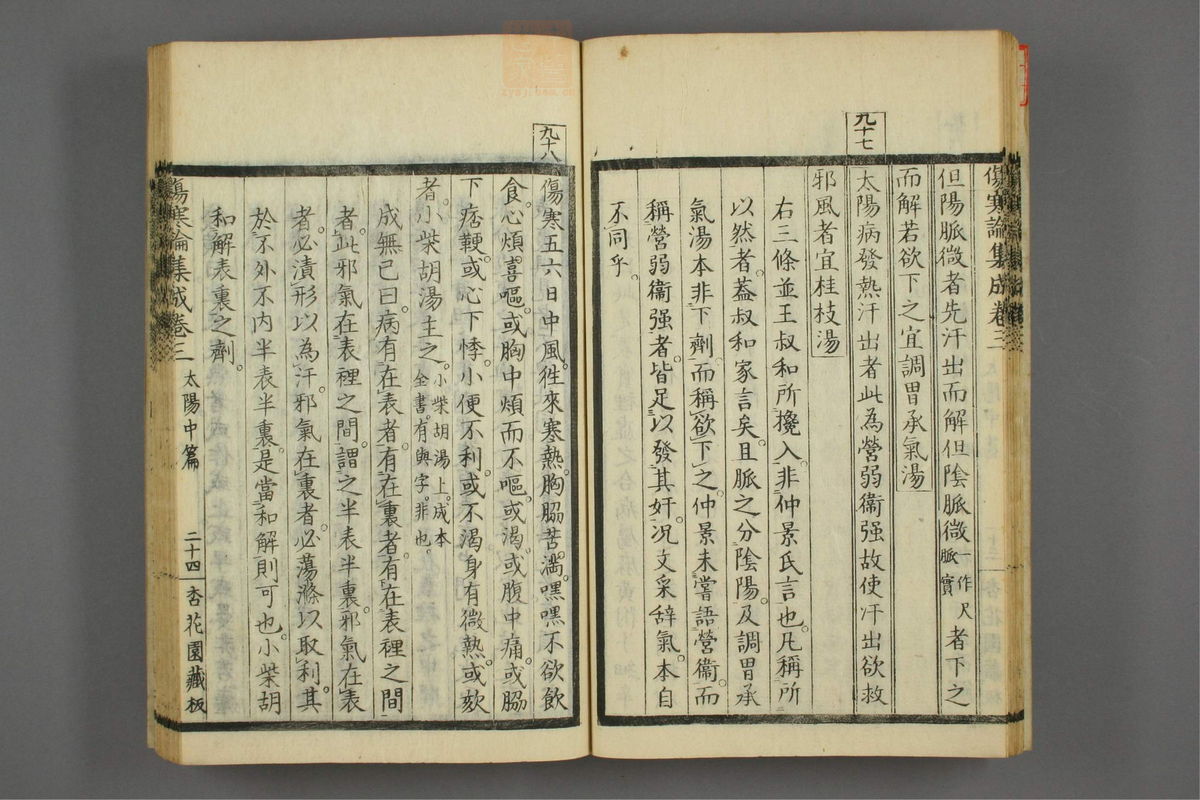 九十七
傷寒論集成卷三
但陽脈微者先汗出而解但陰脈微一作尺脈實者下之
而解若欲下之宜調胃承氣湯
太陽病發熱汗出者此為營弱衞强故使汗出欲救
邪風者宜桂枝湯
右三條並王叔和所攙入。非仲景氏言也。凡稱所
以然者。蓋叔和家言矣。且脈之分陰陽。及調胃承
氣湯本非下劑。而稱欲下之。仲景未嘗語營衞。而
稱營弱衞强者。皆足以發其奸。况文采辭氣。本自
不同乎。
九十八
傷寒五六日中風。徃來寒熱。胸脇苦滿。嘿嘿不欲飲
食。心煩。喜嘔。或胸中煩而不嘔。或渴。或腹中痛。或脇
下痞鞕。或心下悸。小便不利。或不渴。身有微熱。或欬
者。小柴胡湯主之。小柴胡湯上。成本全書。有與字。非也。
成無已曰。病有在表者。有在裏者。有在表裡之間
者。此邪氣在表裡之間。謂之半表半裏。邪氣在表
者。必漬形以為汗。邪氣在裏者。必蕩滌以取利。其
於不外不内半表半裏。是當和解則可也。小柴胡
和解表裏之劑。
傷寒論集成卷三 太陽中篇 二十四 杏花園藏板